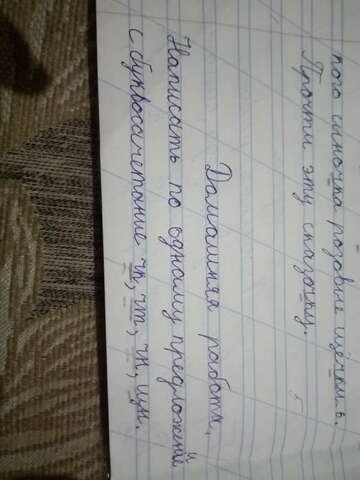 кого сыночка розовые щёчки в.
Прочти эту сказочку.
Домашняя работа.
Написать по одному предложений
с буквосочетание чк, чт, чн, щн.